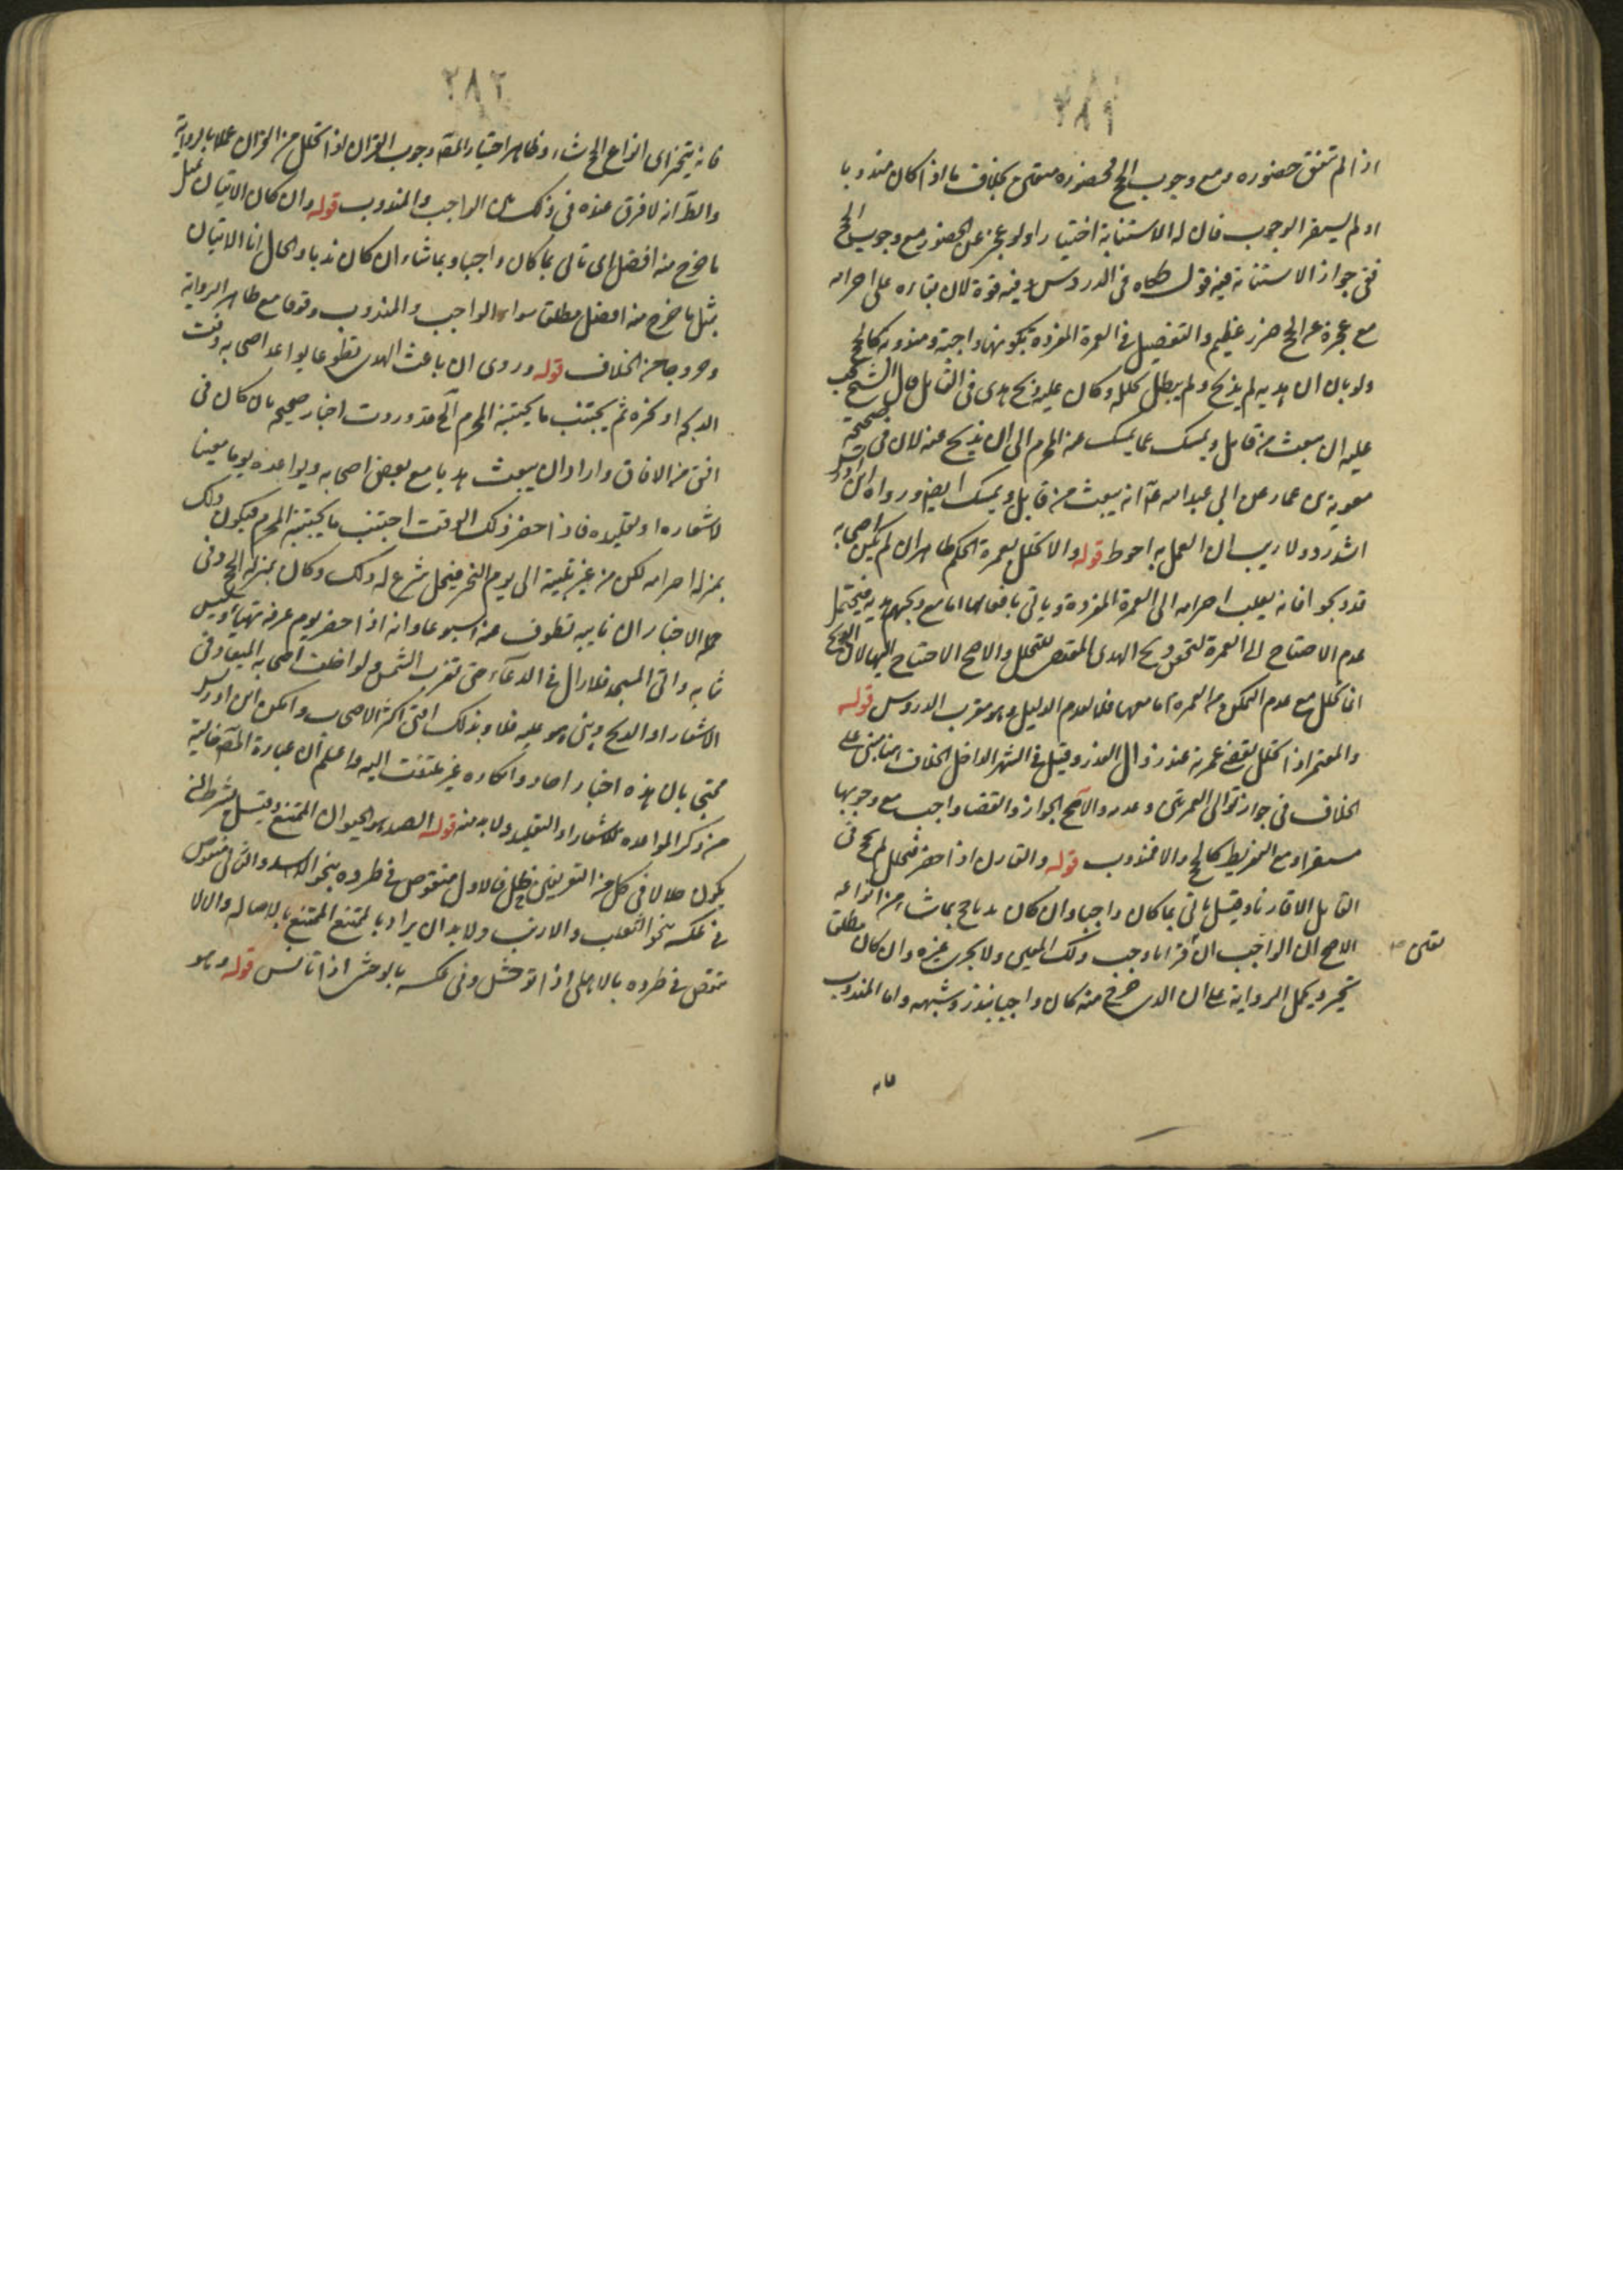 ٢٨١
اذا لم تتفق حضوره ومع وجوب الحج فحضوره متعين بخلاف ما اذا كان مندوبا
او لم يستقر الوجوب فان له الاستنابة اختيارا ولو عجز عن الحضور مع وجوب الحج
ففي جواز الاستنابة فيه قول حكاه في الدروس وفيه قوة لان بقاءه على احرامه
مع عجزه عن الحج ضرر عظيم والتفصيل في العمرة المفردة بكونها واجبة ومندوبة كالحج
ولو بان ان هديه لم يذبح ولم يبطل تحلله وكان عليه ذبح هدي في القابل قال الشيخ يجب
عليه ان يبعث من قابل ويمسك عما يمسك عنه المحرم الى ان يذبح عنه لان في صحيحة
معوية بن عمار عن ابي عبد الله ع انه يبعث من قابل ويمسك ايضا ورواه ابن ادريس
اشد رد ولا ريب ان العمل به احوط قوله والا تحلل بعمرة الحكم ظاهر ان لم يكن اصحابه
قد ذبحوا فانه يقلب احرامه الى العمرة المفردة وياتي بافعالها اما مع ذبحهم هديه فيحتمل
عدم الاحتياج الى العمرة لتحقق ذبح الهدي المقتضي للتحلل والاصح الاحتياج اليها لان الذبح
انما يحلل مع عدم التمكن من العمرة اما معها فلا لعدم الدليل وهو مقرب الدروس قوله
والمعتمر اذا تحلل يقضي عمرته عند زوال العذر وقيل في الشهر الداخل الخلاف هنا مبني على
الخلاف في جواز توالي العمرتين وعدمه والاصح الجواز والقضاء واجب مع وجوبها
مستقرا ومع التفريط كالحج والا فمندوب قوله والقارن اذا احصر فتحلل لم يحج في
القابل الا قارنا وقيل ياتي بما كان واجبا وان كان ندبا حج بما شاء من انواعه
الاصح ان الواجب ان قرانا وجب ذلك المعين ولا يجزي غيره وان كان مطلقا
يعين صح
تخير ويحمل الرواية على ان الذي خرج منه كان واجبا بنذر وشبهه واما المندوب
فانه
٢٨٢
فانه يتخير اي انواع الحج شاء وظاهر اختيار المصـ وجوب القران اذا تحلل من القران عملا بالرواية
والظـ انه لا فرق عنده في ذلك بين الواجب والمندوب قوله وان كان الاتيان بمثل
ما خرج منه افضل اي ياتي بما كان واجبا وبما شاء ان كان ندبا والحال ان الاتيان
بمثل ما خرج منه افضل مطلقا سواء الواجب والمندوب وقوفا مع ظاهر الرواية
وخروجا من الخلاف قوله وروى ان باعث الهدي تطوعا يواعد اصحابه وقت
الذبحه او نحره ثم يجتنب ما يجتنبه المحرم الخ قد وردت اخبار صحيحه بان كان في
افق من الافاق واراد ان يبعث هديا مع بعض اصحابه ويواعده يوما معينا
لاشعاره او تقليده فاذا حضر ذلك الوقت اجتنب ما يجتنبه المحرم فيكون ذلك
بمنزلة احرامه لكن من غير تلبية الى يوم النحر فيحل شرع له ذلك وكان بمنزلة الحج وفي
الاخبار ان نايبه تطوف عنه اسبوعا وانه اذا حضر يوم عرفة تهيأ ولبس
ثيابه واتى المسجد فلا يزال في الدعاء حتى تغرب الشمس ولو اخلف اصحابه الميعاد في
الاشعار او الذبح وبنى هو عليه فلا وبذلك افتى اكثر الاصحاب وانكره ابن ادريس
محتجا بان هذه اخبار احاد وانكاره غير ملتفت اليه واعلم ان عبارة المصـ خالية
من ذكر المواعدة للاشعار او التقليد ولابد منه قوله الصيد هو الحيوان الممتنع وقيل يشترط ان
يكون حلالا في كل من التعريفين خلل فالاول منقوض في طرده بنحو الاسد والثاني منقوض
في عكسه بنحو الثعلب والارنب ولابد ان يراد بالممتنع الممتنع بالاصالة والا لا
نتقض في طرده بالاهلي اذا توحش وفي عكسه بالوحشي اذا تانس قوله وهو